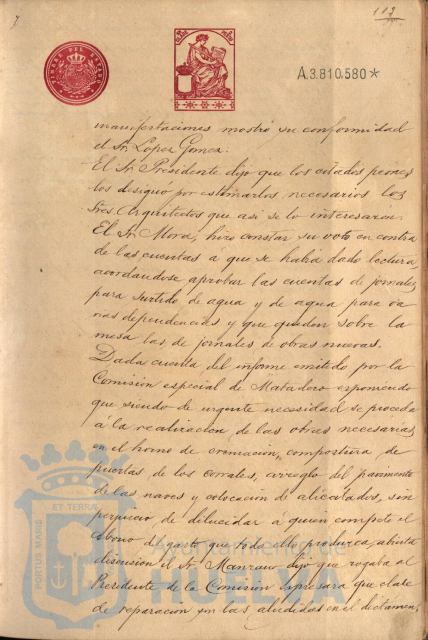 7
113
TIMBRE DEL ESTADO
A.3.810.580*
manifestaciones mostró su conformidad
el Sr. Lopez Gomez.
El Sr. Presidente dijo que los citados peones
los designó por estimarlos necesarios los
Sres. Arquitectos que asi se lo interesaron.
El Sr. Mora, hizo constar su voto en contra
de las cuentas a que se habia dado lectura,
acordandose aprobar las cuentas de jornales
para surtido de agua y de agua para va
rias dependencias y que queden sobre la
mesa las de jornales de obras nuevas.
Dada cuenta del informe emitido por la
Comision especial de Matadero exponiendo
que siendo de urgente necesidad se proceda
á la realizacion de las obras necesarias
en el horno de cremacion, compostura de
puertas de los corrales, arreglo del pavimento
de las naves y colocacion de alicatados, sin
perjuicio de dilucidar á quien compete el
abono del gasto que todo ello produzca, abierta
discusion el Sr. Manzano dijo que rogaba al
Presidente de la Comision expresara que clase
de reparacion son las aludidas en el dictamen,
PORTUS MARIS ET TERRAE
Ayuntamiento de
HUELVA